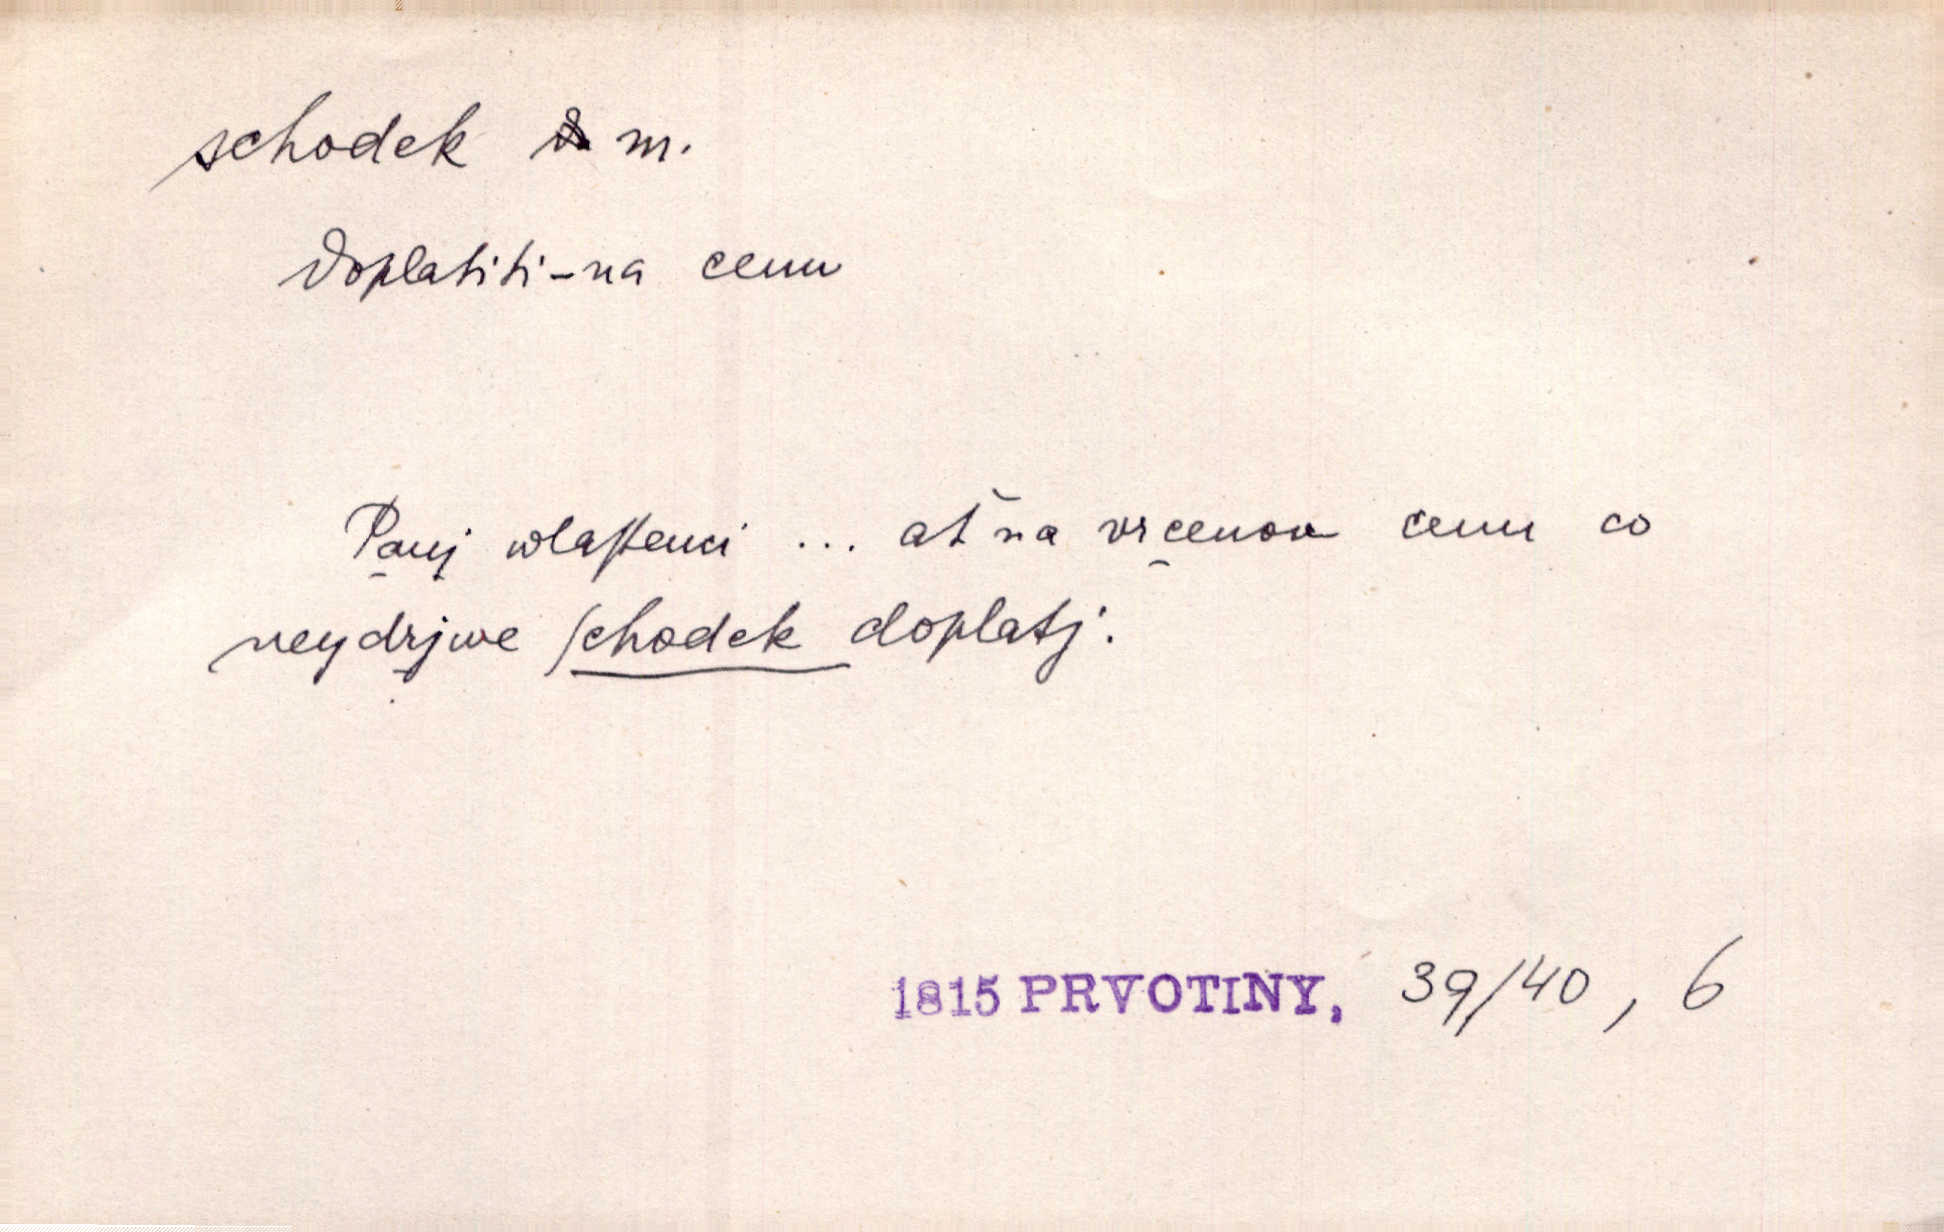 schodek m.
doplatiti – na cenu
Panj wlaſtenci ... ať na vrcenou cenu co
neydrjwe ſchodek doplatj.
1815 PRVOTINY, 39/40, 6